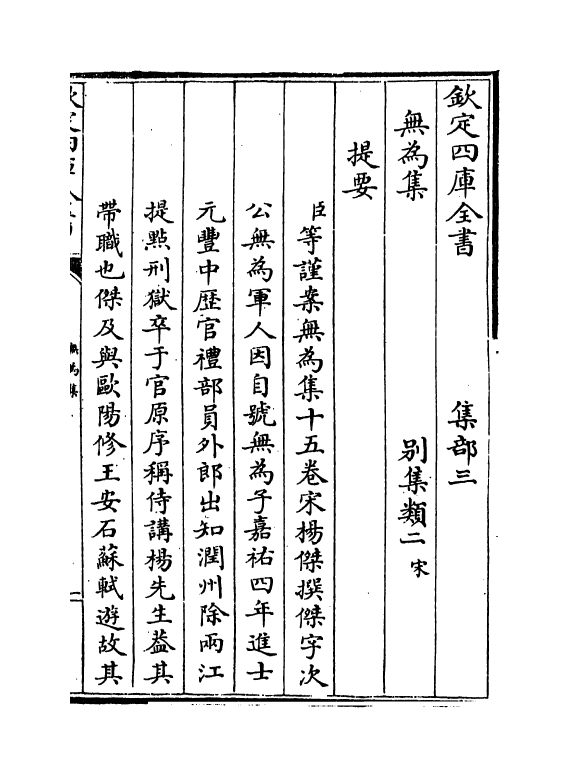 欽定四庫全書　　　　　集部三
無為集　　　　　　　別集類二宋
提要
臣等謹案無為集十五卷宋楊傑撰傑字次
公無為軍人因自號無為子嘉祐四年進士
元豐中歷官禮部員外郎出知潤州除兩江
提點刑獄卒于官原序稱侍講楊先生葢其
帶職也傑及與歐陽修王安石蘇軾遊故其
無為集